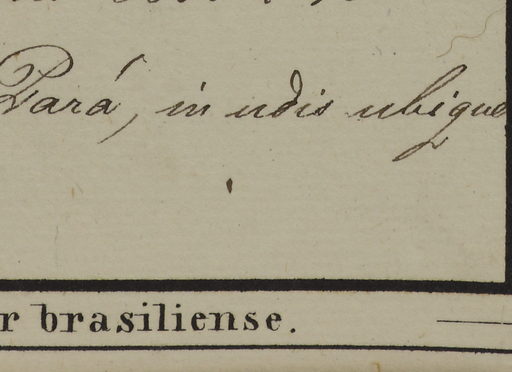 Pará, in udis ubique
r brasiliense.